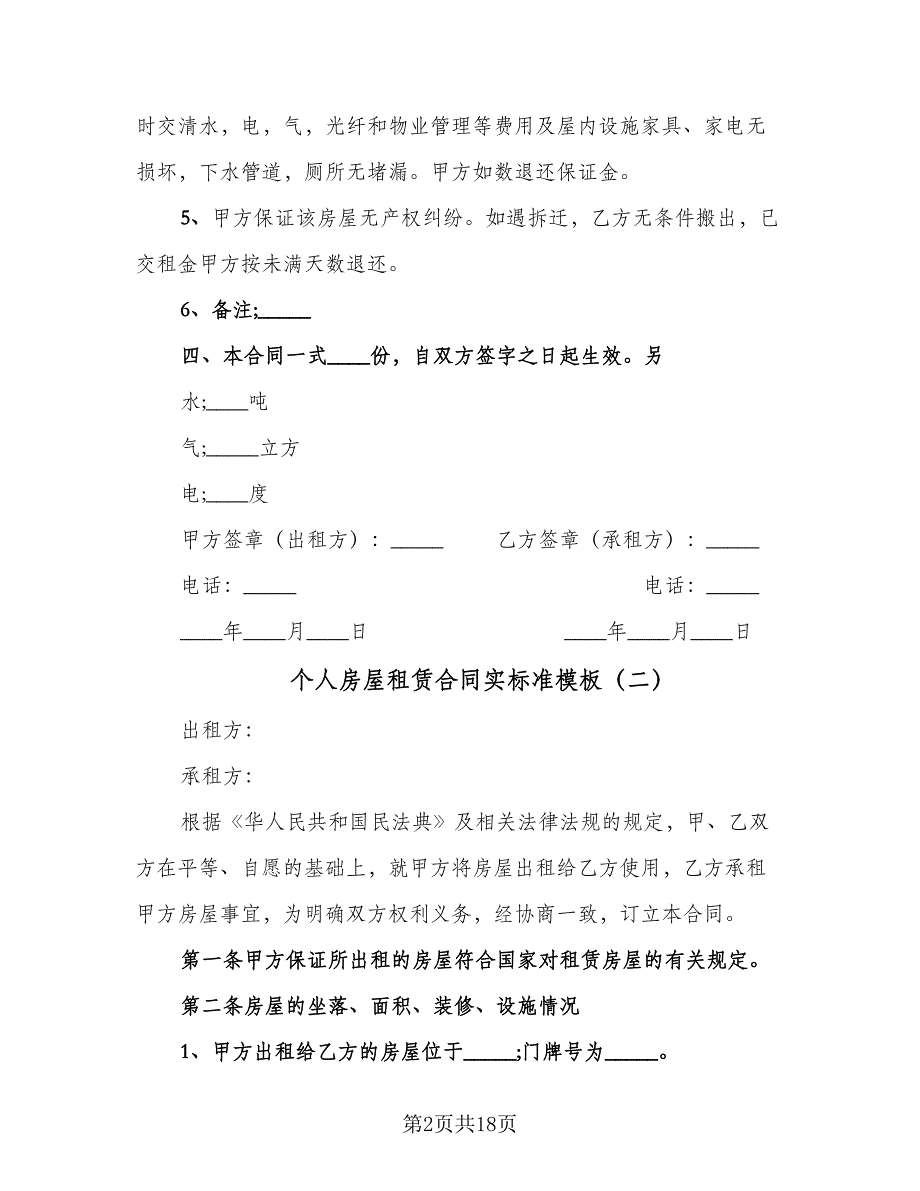 时交清水，电，气，光纤和物业管理等费用及屋内设施家具、家电无
损坏，下水管道，厕所无堵漏。甲方如数退还保证金。
5、甲方保证该房屋无产权纠纷。如遇拆迁，乙方无条件搬出，已
交租金甲方按未满天数退还。
6、备注;_____
四、本合同一式____份，自双方签字之日起生效。另
水;____吨
气;_____立方
电;____度
甲方签章（出租方）：_____ 乙方签章（承租方）：_____
电话：_____ 电话：_____
____年____月____日 ____年____月____日
个人房屋租赁合同实标准模板（二）
出租方：
承租方：
根据《华人民共和国民法典》及相关法律法规的规定，甲、乙双
方在平等、自愿的基础上，就甲方将房屋出租给乙方使用，乙方承租
甲方房屋事宜，为明确双方权利义务，经协商一致，订立本合同。
第一条甲方保证所出租的房屋符合国家对租赁房屋的有关规定。
第二条房屋的坐落、面积、装修、设施情况
1、甲方出租给乙方的房屋位于_____;门牌号为_____。
第2页共18页